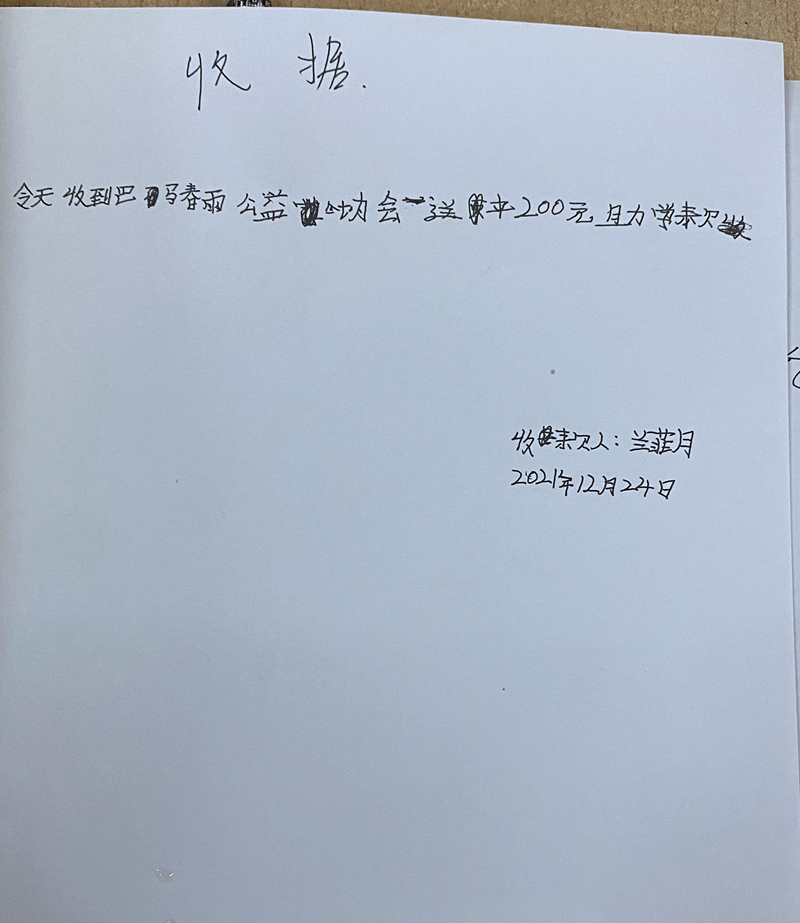 收据.
今天收到巴马春雨公益协会送来200元,助学款
收款人:兰菲月
2021年12月24日